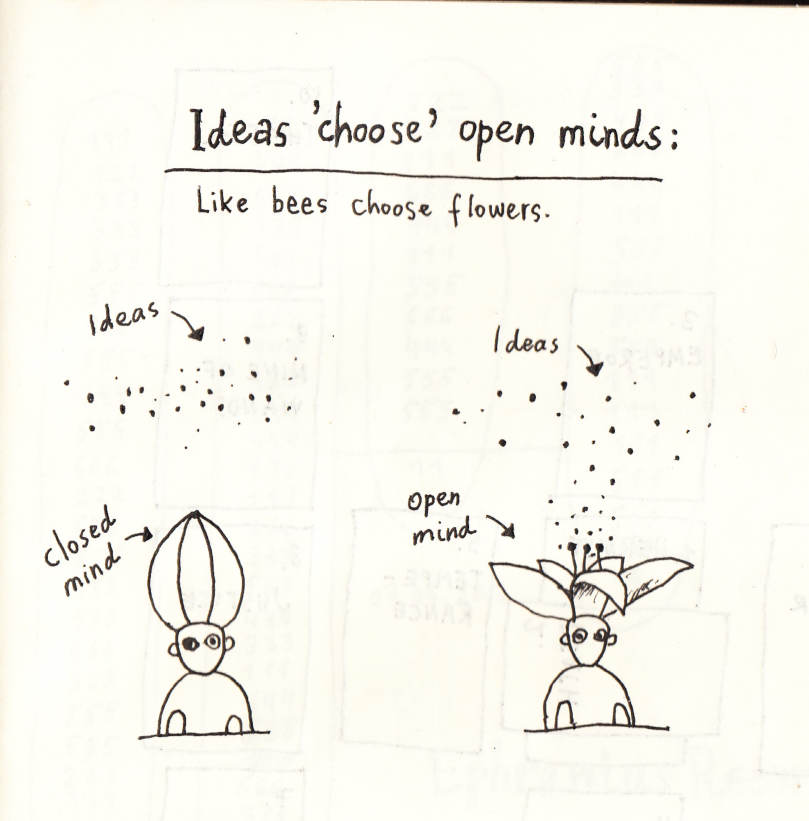 Ideas 'choose' open minds:
Like bees choose flowers.
Ideas
Ideas
open
mind
closed
mind